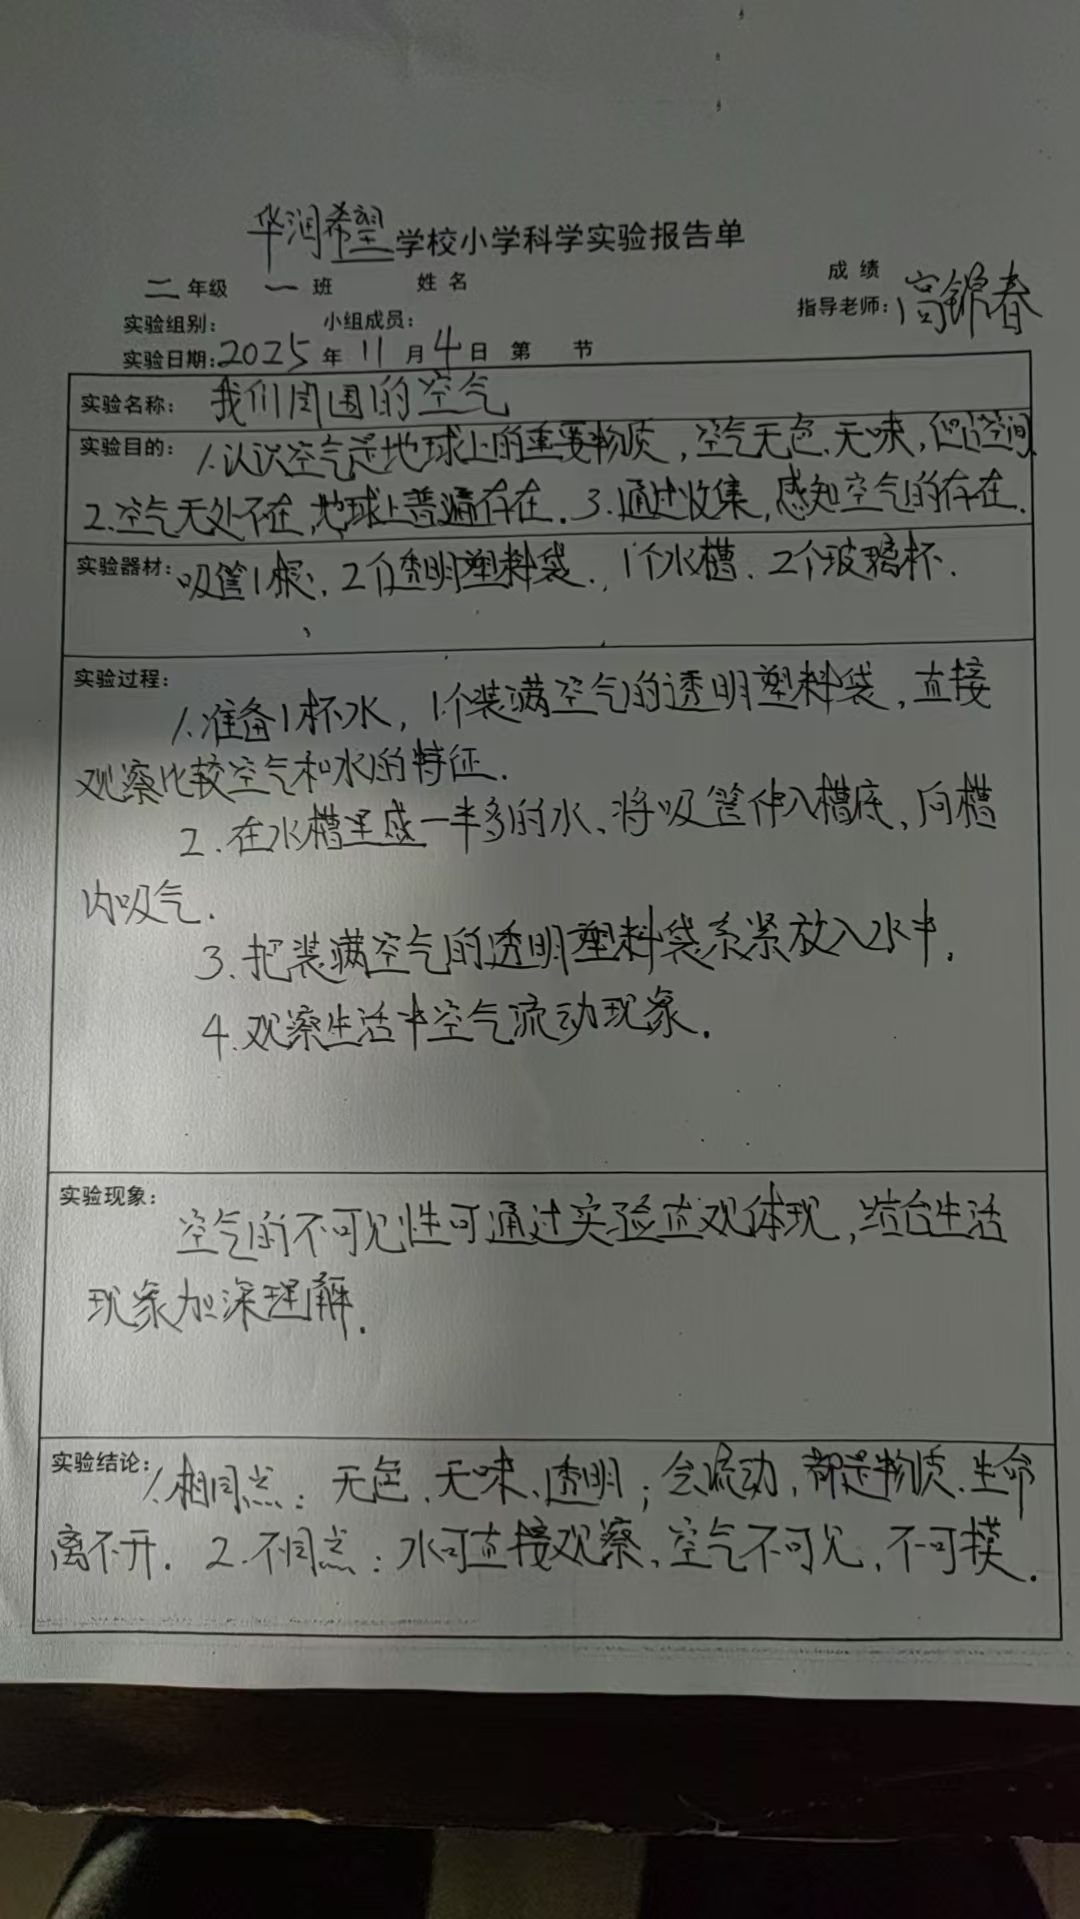 华润希望学校小学科学实验报告单
二年级 一班 姓名 成绩
实验组别: 小组成员: 指导老师:高锦春
实验日期:2025年11月4日 第 节
实验名称: 我们周围的空气
实验目的: 1.认识空气是地球上的重要物质,空气无色、无味,但占空间
2.空气无处不在,地球上普遍存在.3.通过收集,感知空气的存在.
实验器材: 吸管1根、2个透明塑料袋、1个水槽、2个玻璃杯.
实验过程:
1.准备1杯水,1个装满空气的透明塑料袋,直接
观察比较空气和水的特征.
2.在水槽里盛一半多的水、将吸管伸入槽底、向槽
内吸气.
3.把装满空气的透明塑料袋系紧放入水中.
4.观察生活中空气流动现象.
实验现象:
空气的不可见性可通过实验直观体现,结合生活
现象加深理解.
实验结论: 1.相同点:无色、无味、透明;会流动,都是物质、生命
离不开. 2.不同点:水可直接观察、空气不可见,不可摸.